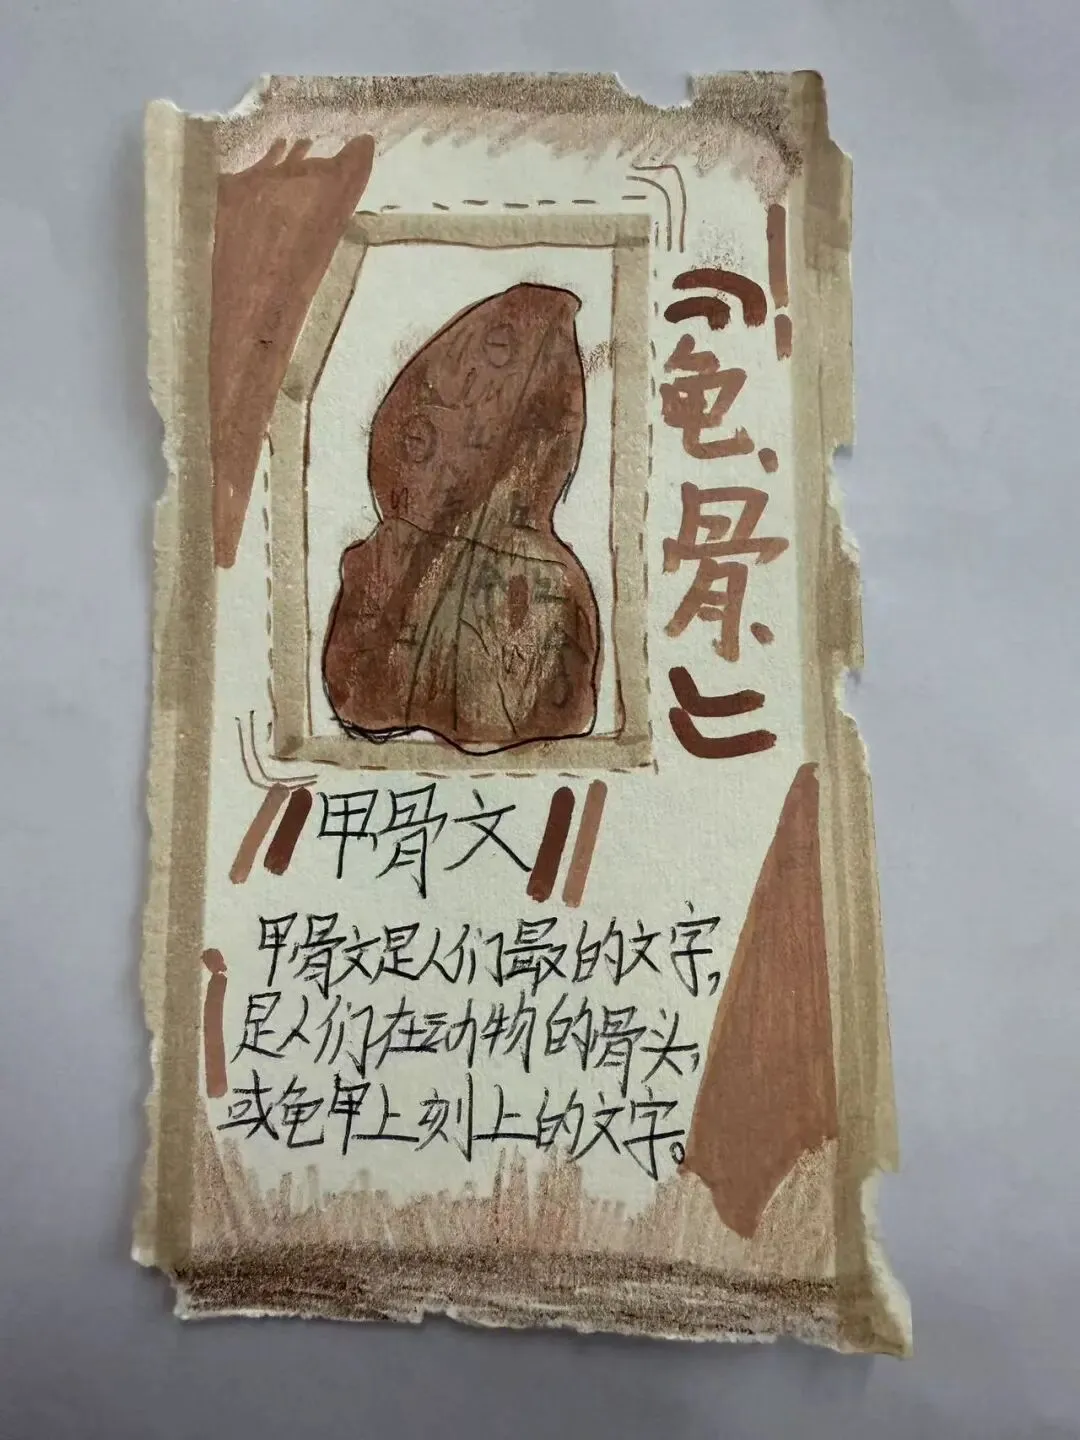 《龟、骨、》
甲骨文
甲骨文是人们最的文字，
是人们在动物的骨头，
或龟甲上刻上的文字。